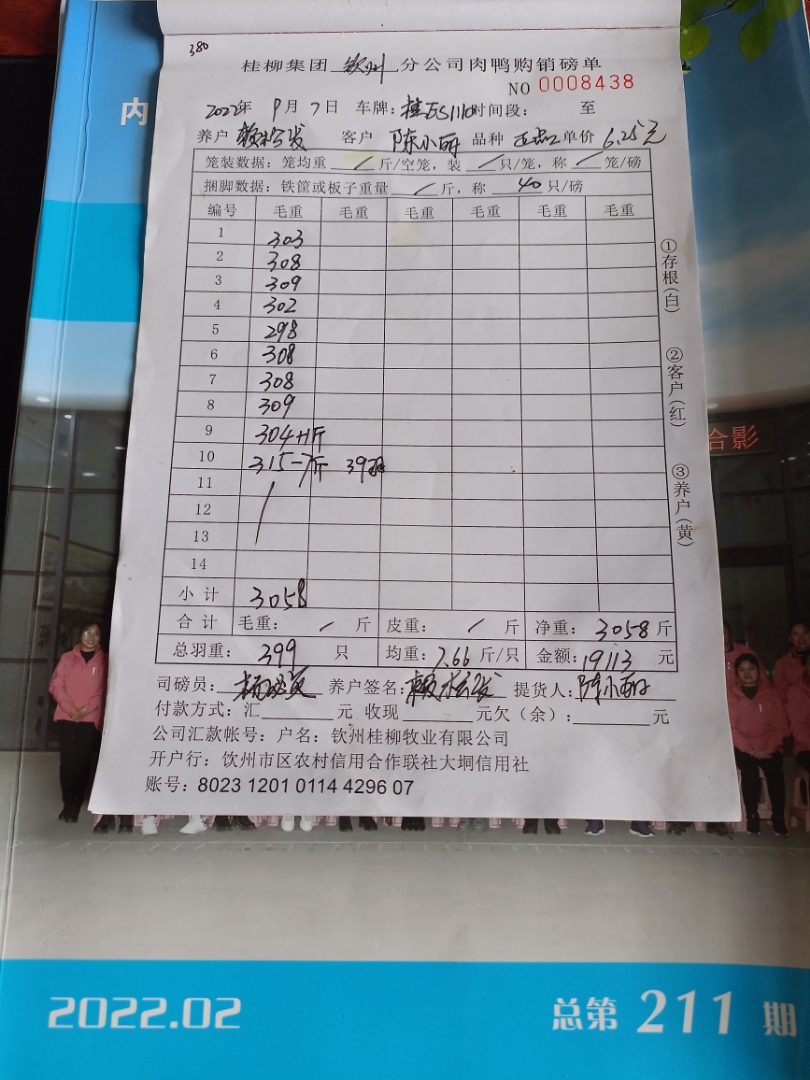 380
桂柳集团 钦州 分公司肉鸭购销磅单
NO 0008438
2022年 9月7日 车牌：桂E5S1110 时间段： 至
养户 客户 陈小丽 品种 单价 6.25元
笼装数据：笼均重 / 斤/空笼，装 / 只/笼，称 / 笼/磅
捆脚数据：铁筐或板子重量 / 斤，称 40 只/磅
编号 毛重 毛重 毛重 毛重 毛重 毛重
1 303
2 308
3 309
4 302
5 298
6 308
7 308
8 309
9 304+1斤
10 315-7斤 39羽
11
12
13
14
小计 3058
合计 毛重： / 斤 皮重： / 斤 净重：3058斤
总羽重： 399 只 均重：7.66斤/只 金额：19113 元
司磅员： 养户签名： 提货人：陈小丽
付款方式：汇 元 收现 元欠（余）： 元
公司汇款帐号：户名：钦州桂柳牧业有限公司
开户行：饮州市区农村信用合作联社大垌信用社
账号：8023 1201 0114 4296 07
①存根(白)
②客户(红)
③养户(黄)
内
合影
2022.02
总第 211 期